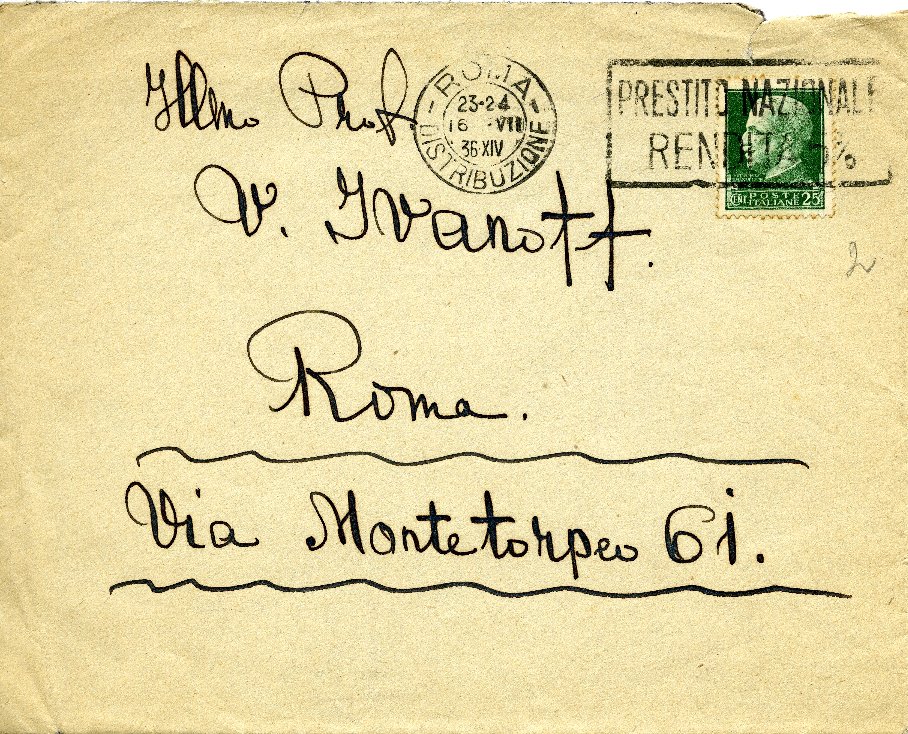 Illmo Prof.
V. Ivanoff.
Roma.
Via Montetorpeo 61.
ROMA
23-24
16 VII
36 XIV
DISTRIBUZIONE
PRESTITO NAZIONALE
RENDITA 5%
POSTE
ITALIANE
CENT 25
2